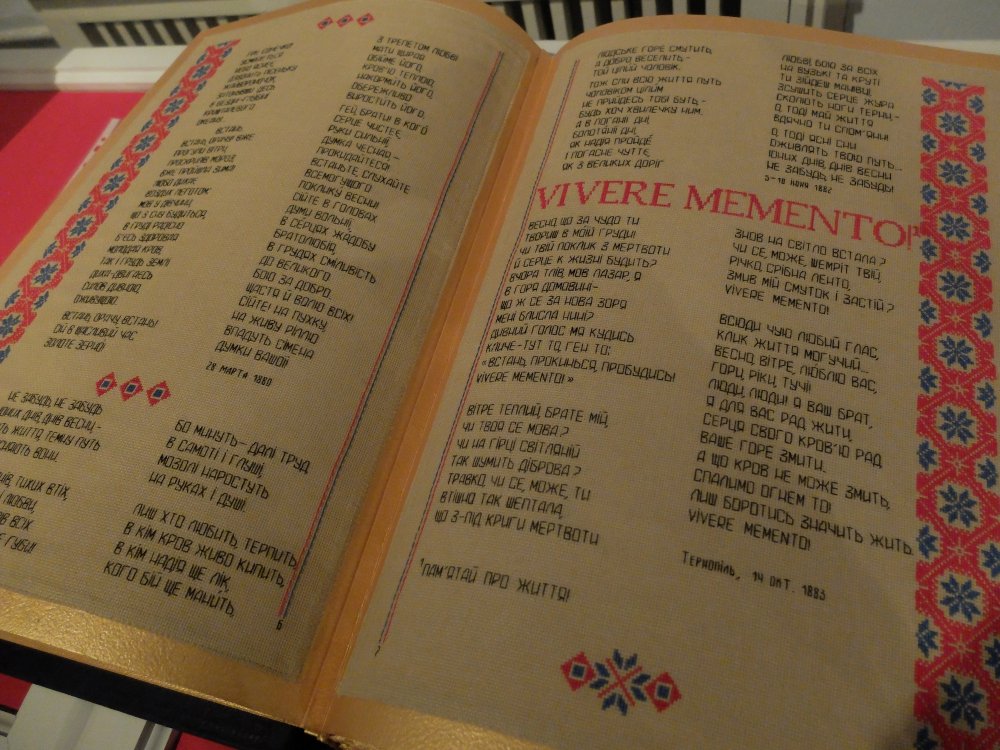 земля
встань,
встань, орачу! Вже
прогули вітри,
проскрипів мороз,
вже пройшла зима!
Любо диха
воздух леготом;
мов у дівчини,
що з сну будиться,
в груді радісно
б'єсь здоровла
молодая кров,
так і грудь землі
диха-двигаєсь
силов дивною,
оживущою.
Встань, орачу, встань!
Сій в щасливий час
золоте зерно!
З трепетом любві
мати щирая
обійме його,
кров'ю теплою
накормить його,
обережливо
виростить його.
Гей, брати! В кого
серце чистеє,
руки сильнії,
думка чесная —
прокидайтеся!
Встаньте, слухайте
всемогущого
поклику весни!
Сійте в головах
думи вольнії,
в серцях жадобу
братолюбія,
в грудях сміливість
до великого
бою за добро,
щастя й волю всіх!
Сійте! На пухку,
на живу ріллю
впадуть сімена
думки вашої!
28 марта 1880
Не забудь, не забудь
юних днів, днів весни,—
життя, темну путь
вони.
тихих втіх,
любви,
всіх
губи!
Бо минуть — далі труд
в самоті і глуші,
мозолі наростуть
на руках і душі.
Лиш хто любить, терпить,
в кім кров живо кипить,
в кім надія ще лік,
кого бій ще манить,
6
людське горе смутить,
а добро веселить,—
той цілий чоловік.
Тож сли всю життя путь
чоловіком цілим
не прийдесь тобі буть,—
будь хоч хвилечку ним.
А в погані дні,
болотяні дні,
як надія пройде
і погасне чуттє,
як з великих доріг
любві, бою за всіх
на вузькі та круті
ти зійдеш манівці,
зсушить серце журa,
сколють ноги терни,—
о, тоді май життя
вдячно ти спом'яни!
О, тоді ясні сни
оживлять твою путь...
Юних днів, днів весни
не забудь, не забудь!
5—10 юня 1882
VIVERE MEMENTO!¹
Весно, що за чудо ти
твориш в моїй груді!
Чи твій поклик з мертвоти
й серце к жизні будить?
Вчора тлів, мов Лазар, я
в горя домовині—
що ж се за нова зоря
мені блисла нині?
Дивний голос мя кудись
кличе—тут то, ген то:
«Встань, прокинься, пробудись!
Vivere memento!»
Вітре теплий, брате мій,
чи твоя се мова?
Чи на гірці світляній
так шумить діброва?
Травко, чи се, може, ти
втішно так шептала,
що з-під криги мертвоти
знов на світло встала?
Чи се, може, шемріт твій,
річко, срібна ленто,
змив мій смуток і застій?
Vivere memento!
Всюди чую любий глас,
клик життя могучий...
Весно, вітре, люблю вас,
гори, ріки, тучі!
Люди, люди! Я ваш брат,
я для вас рад жити,
серця свого кров'ю рад
ваше горе змити.
А що кров не може змить,
спалимо огнем то!
Лиш боротись значить жить.
Vivere memento!
Тернопіль, 14 окт. 1883
¹Пам'ятай про життя!
7